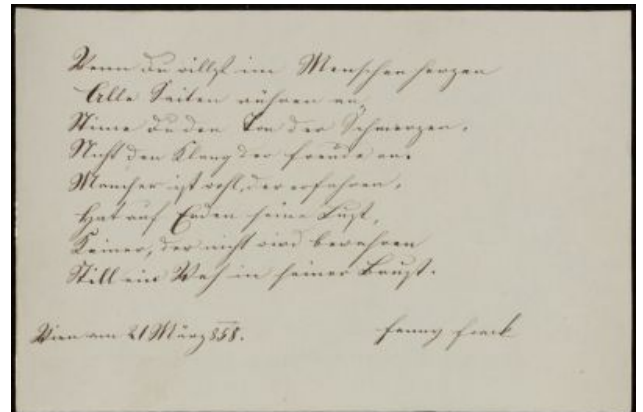 Wenn du willst im Menschenherzen
Alle Saiten rühren an,
Stime du den Ton der Schmerzen,
Nicht den Klang der Freude an.
Mancher ist wohl, der erfahren,
Hat auf Erden keine Lust,
Keiner, der nicht wird bewahren
Still ein Weh in seiner Brust.
Wien am 21 März 858. Fanny